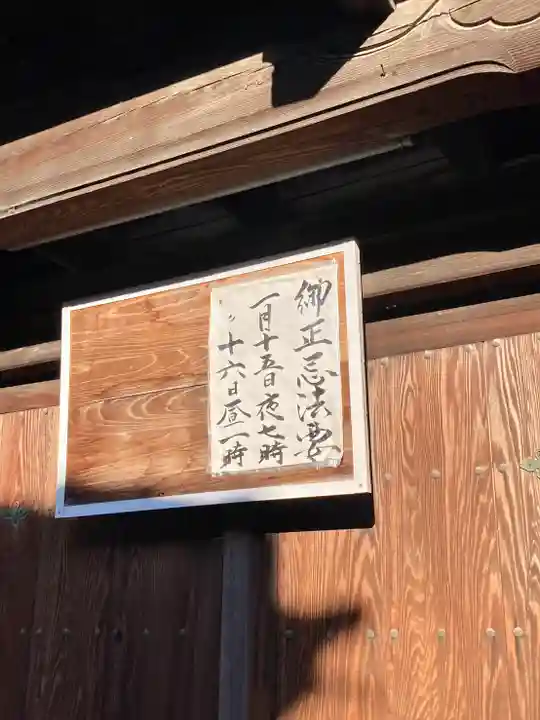 御正忌法要
一月十五日夜七時
〃十六日昼一時